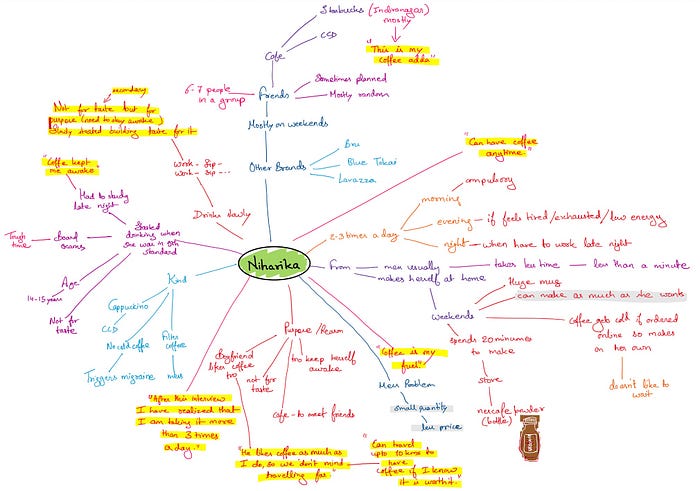 Starbucks (Indiranagar)
mostly
CCD
"This is my
coffee adda"
Cafe
Sometimes planned
Mostly random
Friends
6-7 people
in a group
Mostly on weekends
Other Brands
Bru
Blue Tokai
Lavazza
secondary
Not for taste but for
purpose (need to stay awake)
Slowly started building taste for it
Work - Sip -
Work - Sip -...
Drinks slowly
"Coffee kept
me awake"
Had to study
late night
Started
drinking when
she was in 9th
standard
Tough
time
board
exams
Age
14-15 years
Not for
taste
Niharika
"Can have coffee
anytime."
2-3 times a day
morning
compulsory
evening
if feels tired/exhausted/low energy
night
when have to work late night
From
men usually
takes less time
less than a minute
makes herself at home
weekends
Huge mug
can make as much as she wants
Coffee gets cold if ordered
online so makes
on her own
doesn't like to
wait
spends 20 minutes
to make
store
nescafe powder
(bottle)
Kind
Cappuccino
CCD
No cold coffee
Triggers migraine
Filter
coffee
Purpose/Reason
Boyfriend
likes coffee
too
not for
taste
too keep herself
awake
Cafe - to meet friends
"Coffee is my
fuel."
Mess Problem
small quantity
less price
"After this interview
I have realized that
I am taking it more
than 3 times
a day."
"He likes coffee as much as
I do, so we don't mind
travelling far."
"Can travel
upto 10kms to
have
coffee if I know
it is worth it."